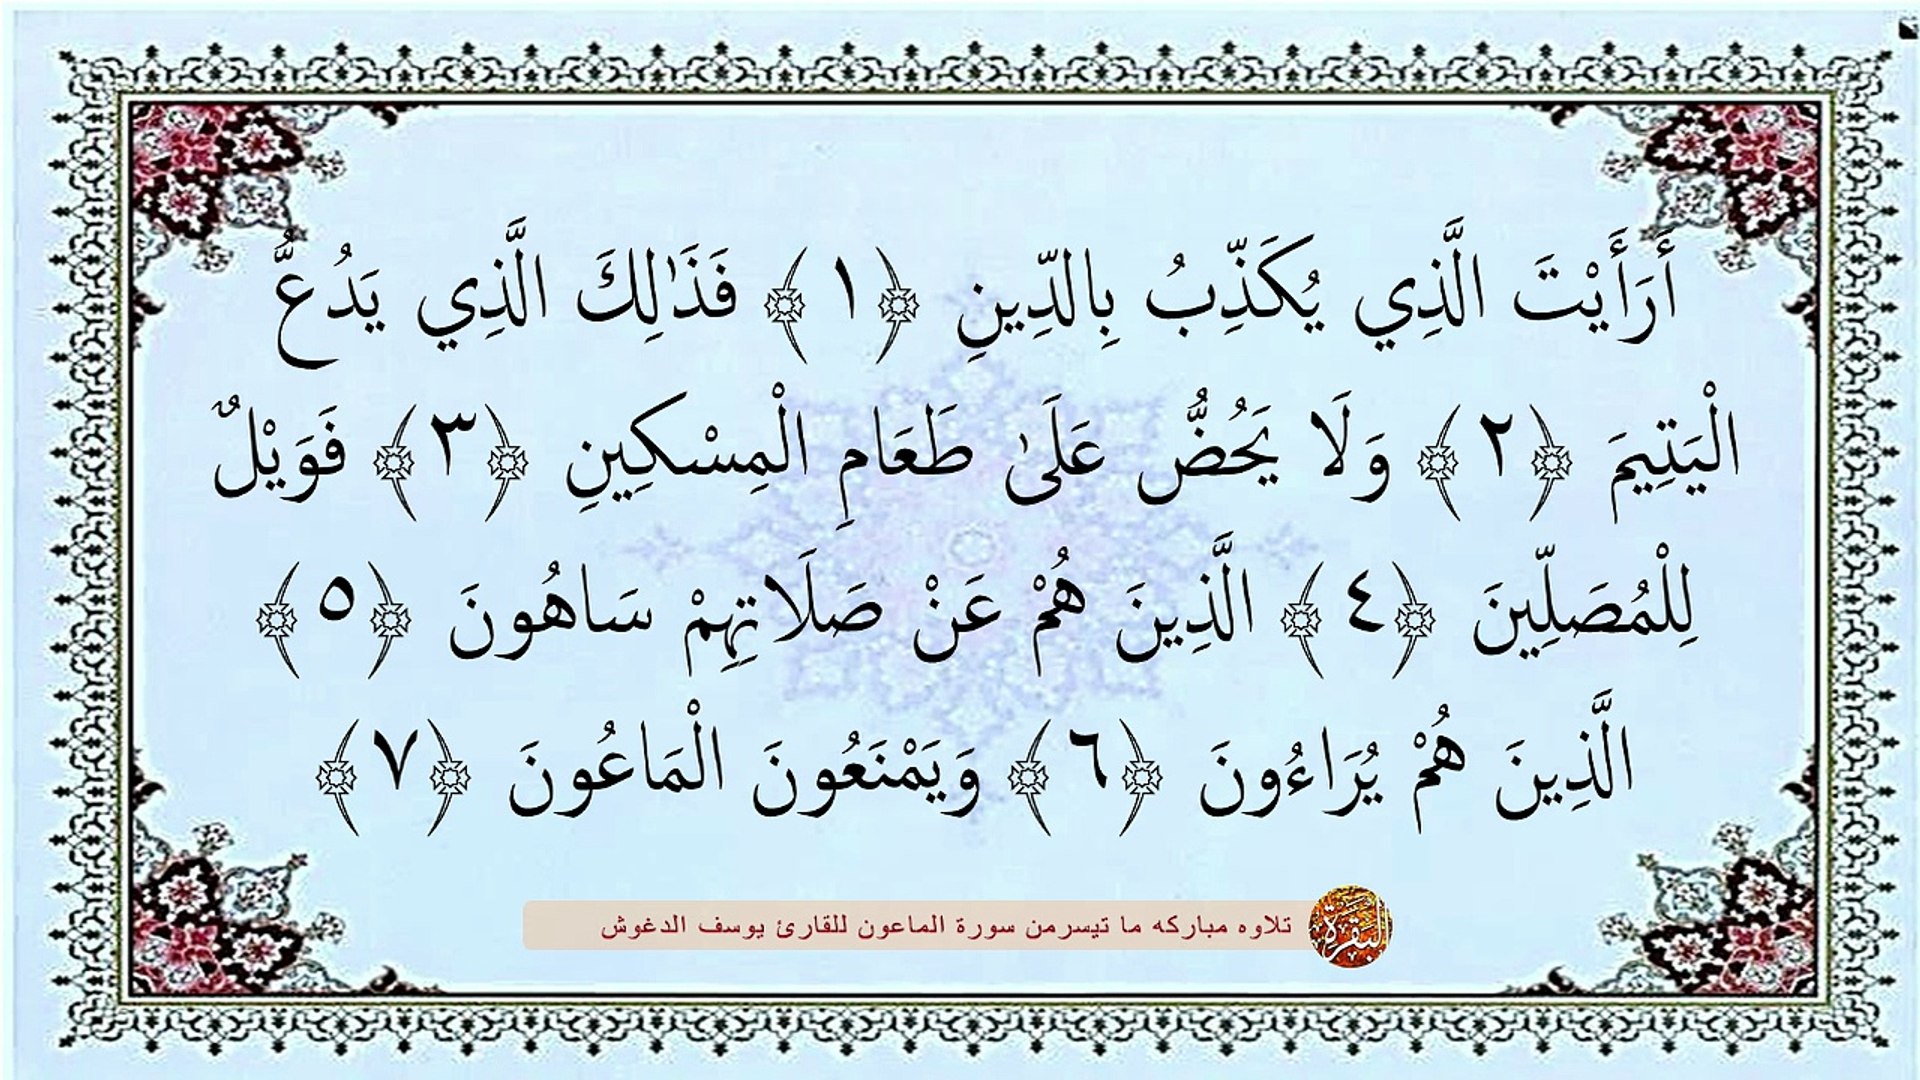 أَرَأَيْتَ الَّذِي يُكَذِّبُ بِالدِّينِ ﴿١﴾ فَذَٰلِكَ الَّذِي يَدُعُّ
الْيَتِيمَ ﴿٢﴾ وَلَا يَحُضُّ عَلَىٰ طَعَامِ الْمِسْكِينِ ﴿٣﴾ فَوَيْلٌ
لِلْمُصَلِّينَ ﴿٤﴾ الَّذِينَ هُمْ عَنْ صَلَاتِهِمْ سَاهُونَ ﴿٥﴾
الَّذِينَ هُمْ يُرَاءُونَ ﴿٦﴾ وَيَمْنَعُونَ الْمَاعُونَ ﴿٧﴾
تلاوه مباركه ما تيسرمن سورة الماعون للقارئ يوسف الدغوش
البقرة